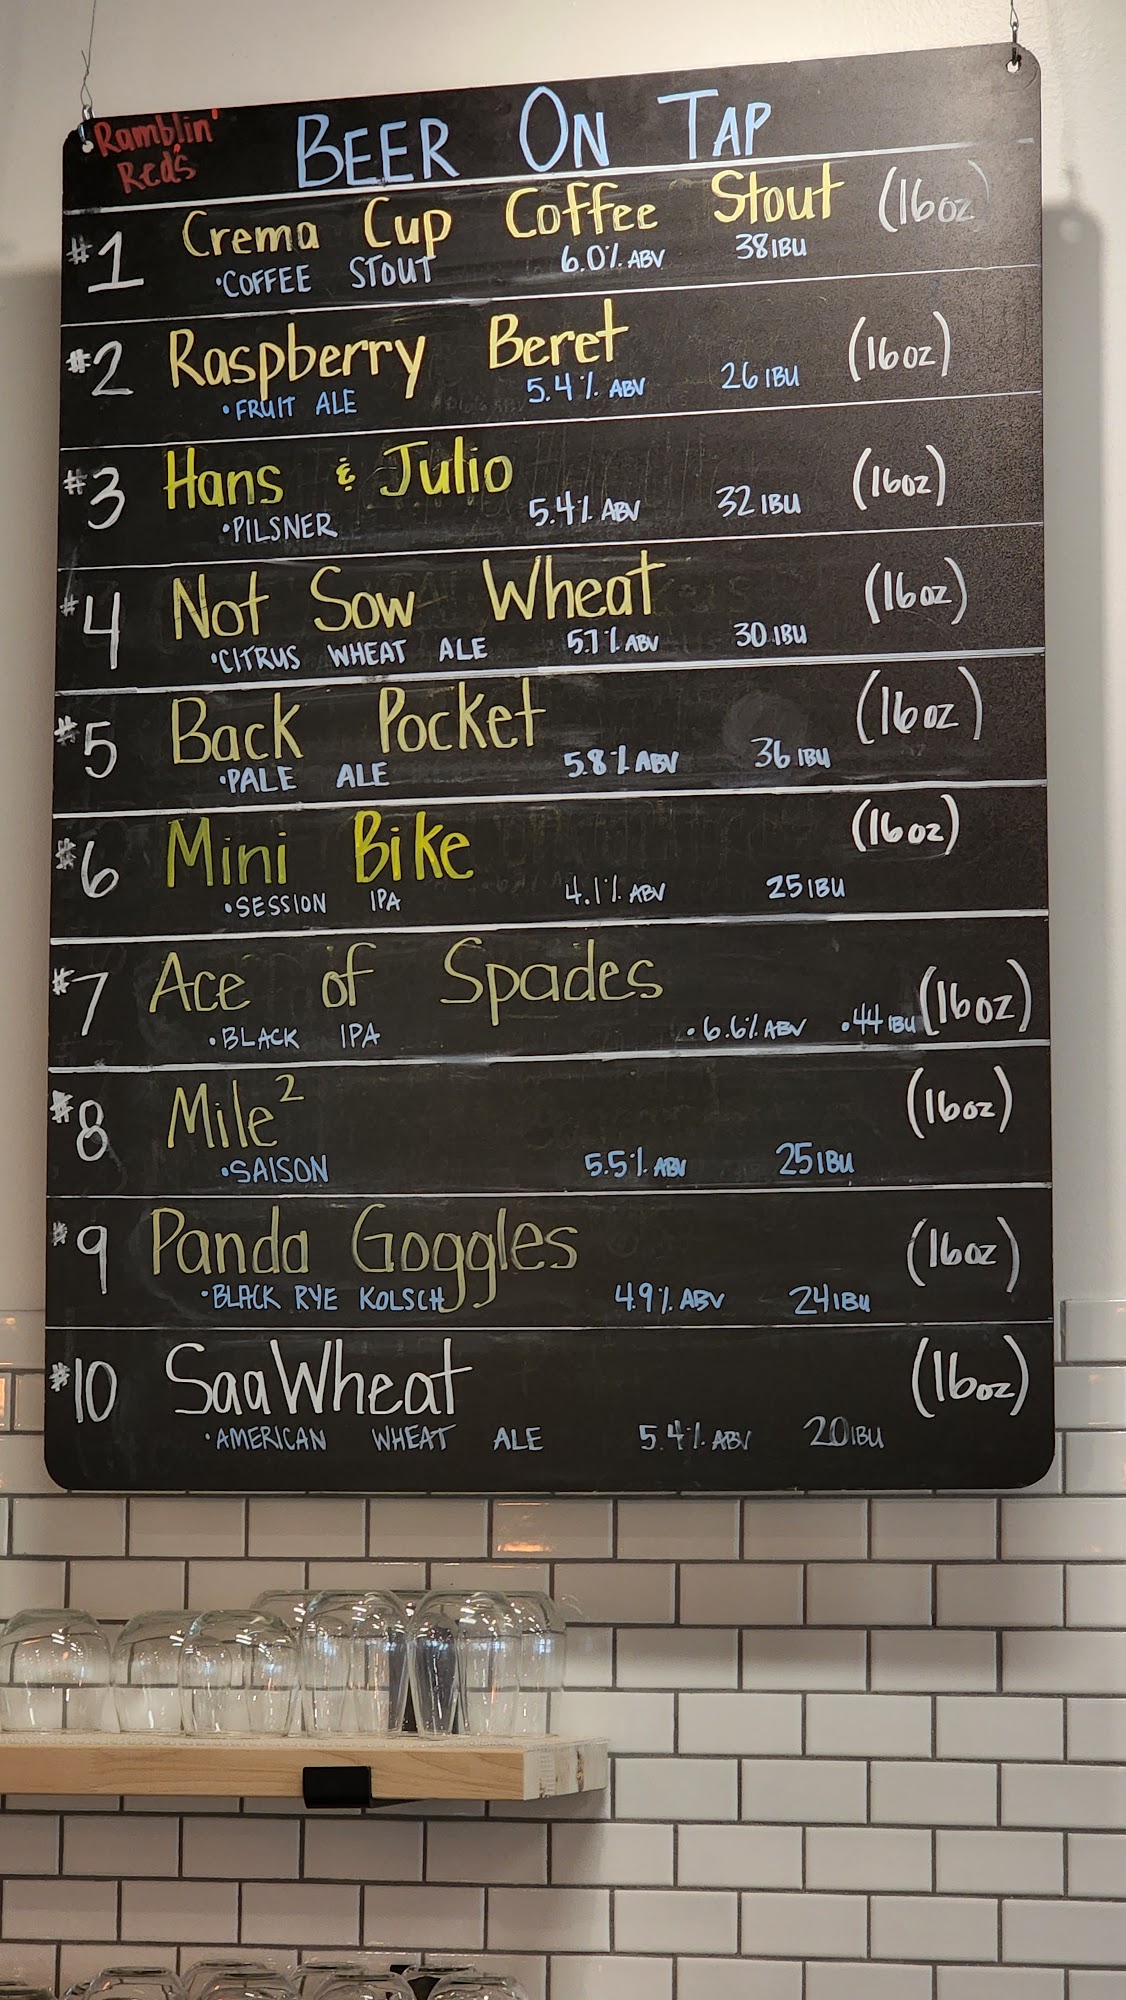 Ramblin'
Red's
BEER ON TAP
#1 Crema Cup Coffee Stout (16oz)
•COFFEE STOUT 6.0% ABV 38 IBU
#2 Raspberry Beret (16oz)
•FRUIT ALE 5.4% ABV 26 IBU
#3 Hans & Julio (16oz)
•PILSNER 5.4% ABV 32 IBU
#4 Not Sow Wheat (16oz)
•CITRUS WHEAT ALE 5.1% ABV 30 IBU
#5 Back Pocket (16oz)
•PALE ALE 5.8% ABV 36 IBU
#6 Mini Bike (16oz)
•SESSION IPA 4.1% ABV 25 IBU
#7 Ace of Spades (16oz)
•BLACK IPA •6.6% ABV •44 IBU
#8 Mile² (16oz)
•SAISON 5.5% ABV 25 IBU
#9 Panda Goggles (16oz)
•BLACK RYE KOLSCH 4.9% ABV 24 IBU
#10 SaaWheat (16oz)
•AMERICAN WHEAT ALE 5.4% ABV 20 IBU